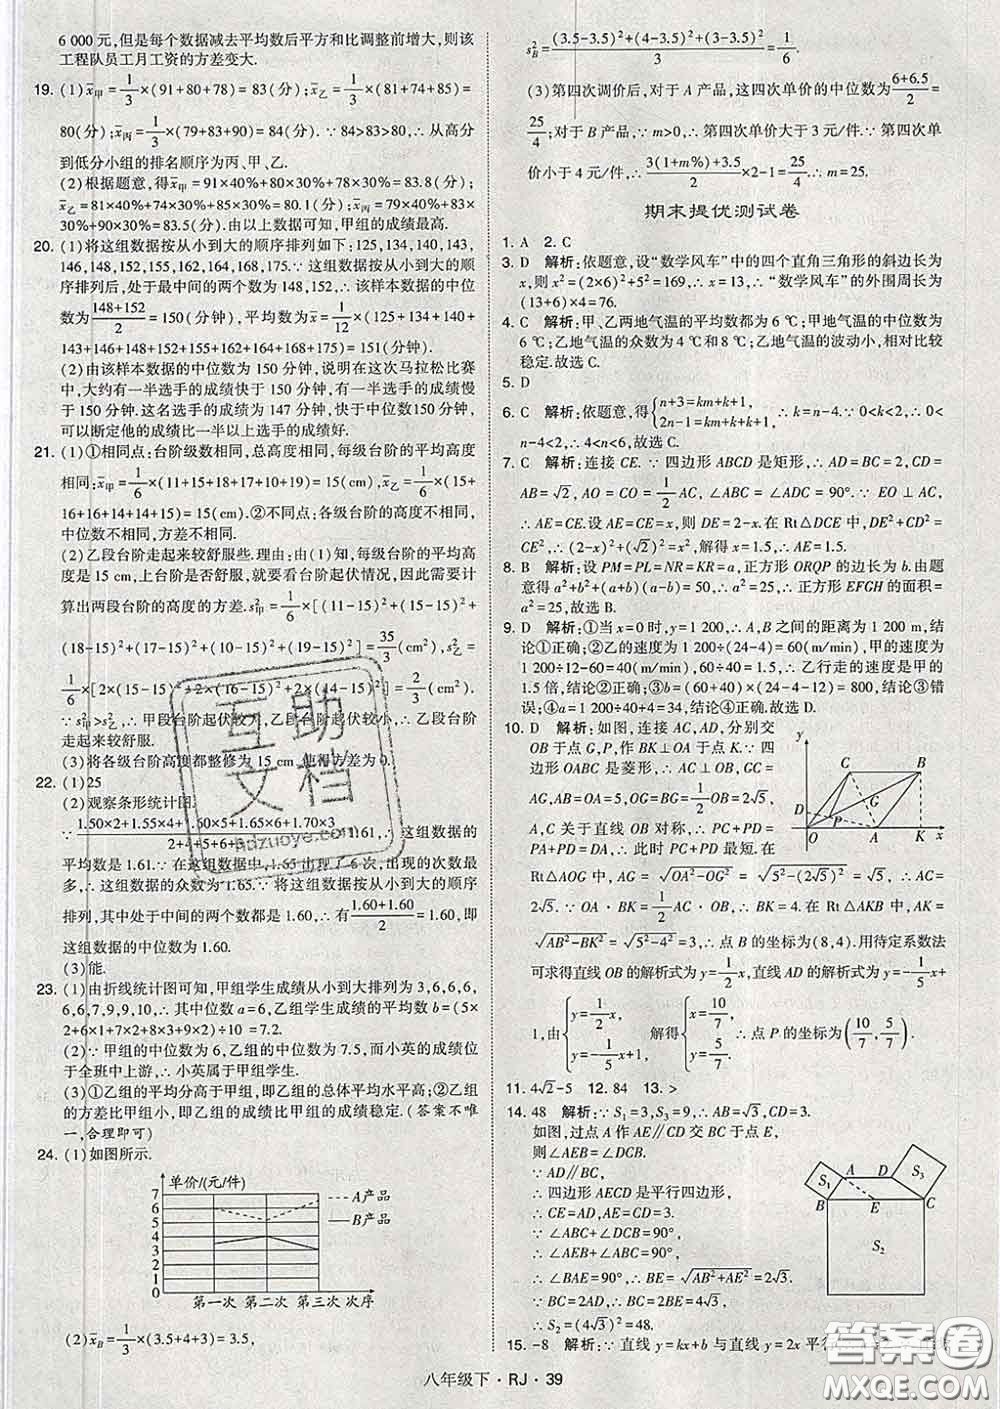 6 000 元,但是每个数据减去平均数后平方和比调整前增大,则该
工程队员工月工资的方差变大.
19. (1) x̄甲=1/3×(91+80+78)=83(分);x̄乙=1/3×(81+74+85)=
80(分);x̄丙=1/3×(79+83+90)=84(分).∵84>83>80,∴从高分
到低分小组的排名顺序为丙、甲、乙.
(2)根据题意,得x̄甲=91×40%+80×30%+78×30%=83.8(分),
x̄乙=81×40%+74×30%+85×30%=80.1(分),x̄丙=79×40%+83×
30%+90×30%=83.5(分).由以上数据可知,甲组的成绩最高.
20. (1)将这组数据按从小到大的顺序排列如下:125,134,140,143,
146,148,152,155,162,168,175.∵这组数据按从小到大的顺
序排列后,处于最中间的两个数为 148,152,∴该样本数据的中位
数为(148+152)/2=150(分钟),平均数为x̄=1/12×(125+134+140+
143+144+146+148+152+155+162+168+175)=151(分钟).
(2)由该样本数据的中位数为 150 分钟,说明在这次马拉松比赛
中,大约有一半选手的成绩快于 150 分钟,有一半选手的成绩慢
于 150 分钟.这名选手的成绩为 147 分钟,快于中位数150分钟,
可以断定他的成绩比一半以上选手的成绩好.
21. (1)①相同点:台阶级数相同,总高度相同,每级台阶的平均高度
相同:x̄甲=1/6×(11+15+18+17+10+19)=15(cm),x̄乙=1/6×(15+
16+16+14+14+15)=15(cm).②不同点:各级台阶的高度不相同,
中位数不相同,方差不相同.
(2)乙段台阶走起来较舒服些.理由:由(1)知,每级台阶的平均高
度是 15 cm,上台阶是否舒服,就要看台阶起伏情况,因此需要计
算出两段台阶的高度的方差.s²甲=1/6×[(11-15)²+(15-15)²+
(18-15)²+(17-15)²+(10-15)²+(19-15)²]=35/3(cm²),s²乙=
1/6×[2×(15-15)²+2×(16-15)²+2×(14-15)²]=2/3(cm²).
∵s²甲>s²乙,∴甲段台阶起伏较大,乙段台阶起伏较小,∴乙段台
阶走起来较舒服.
(3)将各级台阶高度都整修为 15 cm,使得方差为 0.
22. (1)25
(2)观察条形统计图.
∵(1.50×2+1.55×4+1.60×5+1.65×6+1.70×3)/(2+4+5+6+3)=1.61,∴这组数据的
平均数是 1.61.∵在这组数据中,1.65 出现了 6 次,出现的次数最
多,∴这组数据的众数为1.65.∵将这组数据按从小到大的顺序
排列,其中处于中间的两个数都是 1.60,∴有(1.60+1.60)/2=1.60,即
这组数据的中位数为 1.60.
(3)能.
23. (1)由折线统计图可知,甲组学生成绩从小到大排列为 3,6,6,6,
6,6,7,9,9,10,∴其中位数 a=6,乙组学生成绩的平均数 b=(5×
2+6×1+7×2+8×3+9×2)÷10=7.2.
(2)∵甲组的中位数为 6,乙组的中位数为 7.5,而小英的成绩位
于全班中上游,∴小英属于甲组学生.
(3)①乙组的平均分高于甲组,即乙组的总体平均水平高;②乙组
的方差比甲组小,即乙组的成绩比甲组的成绩稳定.(答案不唯
一,合理即可)
24. (1)如图所示.
单价/(元/件)
7
6
5
4
3
2
1
0
A产品
B产品
第一次 第二次 第三次 次序
(2) x̄B=1/3×(3.5+4+3)=3.5,
s²B=((3.5-3.5)²+(4-3.5)²+(3-3.5)²)/3=1/6.
(3)第四次调价后,对于 A 产品,这四次单价的中位数为(6+6.5)/2=
25/4;对于 B 产品,∵m>0,∴第四次单价大于 3 元/件.∵第四次单
价小于 4 元/件,∴(3(1+m%)+3.5)/2×2-1=25/4,∴m=25.
期末提优测试卷
1. A 2. C
3. D 解析:依题意,设“数学风车”中的四个直角三角形的斜边长为
x,则 x²=(2×6)²+5²=169,∴x=13,∴“数学风车”的外围周长为
(13+6)×4=76.
4. C 解析:甲、乙两地气温的平均数都为 6 ℃;甲地气温的中位数为
6 ℃;乙地气温的众数为 4 ℃和 8 ℃;乙地气温的波动小,相对比较
稳定.故选 C.
5. D
6. C 解析:依题意,得{n+3=km+k+1, 2n-1=km+k+k+1, ∴k=n-4.∵0<k<2,∴0<
n-4<2,∴4<n<6,故选 C.
7. C 解析:连接 CE.∵四边形 ABCD 是矩形,∴AD=BC=2,CD=
AB=√2,AO=CO=1/2AC,∠ABC=∠ADC=90°.∵EO⊥AC,
∴AE=CE.设 AE=CE=x,则 DE=2-x.在 Rt△DCE 中,DE²+CD²=
CE²,∴(2-x)²+(√2)²=x²,解得 x=1.5,∴AE=1.5.
8. B 解析:设 PM=PL=NR=KR=a,正方形 ORQP 的边长为 b.由题
意得 a²+b²+(a+b)(a-b)=50,∴a²=25,∴正方形 EFGH 的面积=
a²=25,故选 B.
9. D 解析:①当 x=0 时,y=1 200,∴A,B 之间的距离为 1 200 m,结
论①正确;②乙的速度为 1 200÷(24-4)=60(m/min),甲的速度为
1 200÷12-60=40(m/min),60÷40=1.5,∴乙行走的速度是甲的
1.5 倍,结论②正确;③b=(60+40)×(24-4-12)=800,结论③错
误;④a=1 200÷40+4=34,结论④正确.故选 D.
10. D 解析:如图,连接 AC,AD,分别交
OB 于点 G,P,作 BK⊥OA 于点 K.∵四
边形 OABC 是菱形,∴AC⊥OB,GC=
AG,OG=BG=1/2OB=2√5,
A,C 关于直线 OB 对称,∴PC+PD=
PA+PD=DA,∴此时 PC+PD 最短.在
Rt△AOG 中,AG=√(OA²-OG²)=√(5²-(2√5)²)=√5,∴AC=
2√5.∵OA·BK=1/2AC·OB,∴BK=4.在 Rt△AKB 中,AK=
√(AB²-BK²)=√(5²-4²)=3,∴点 B 的坐标为(8,4).用待定系数法
可求得直线 OB 的解析式为 y=1/2x,直线 AD 的解析式为 y=-1/5x+
1,由{y=1/2x, y=-1/5x+1, 解得{x=10/7, y=5/7. ∴点 P 的坐标为(10/7,5/7).
y
C
B
G
D
P
O
A
K
x
11. 4√2-5 12. 84 13. >
14. 48 解析:∵S₁=3,S₃=9,∴AB=√3,CD=3.
如图,过点 A 作 AE∥CD 交 BC 于点 E,
则∠AEB=∠DCB.
∵AD∥BC,
∴四边形 AECD 是平行四边形,
∴CE=AD,AE=CD=3.
∵∠ABC+∠DCB=90°,
∴∠AEB+∠ABC=90°,
∴∠BAE=90°,∴BE=√(AB²+AE²)=2√3.
∵BC=2AD,∴BC=2BE=4√3,
∴S₂=(4√3)²=48.
S₁
A
D
S₃
B
E
C
S₂
15. -8 解析:∵直线 y=kx+b 与直线 y=2x-3 平行
八年级下·RJ·39
互助
文档
hdzuoye.com
答案圈
MXQE.COM